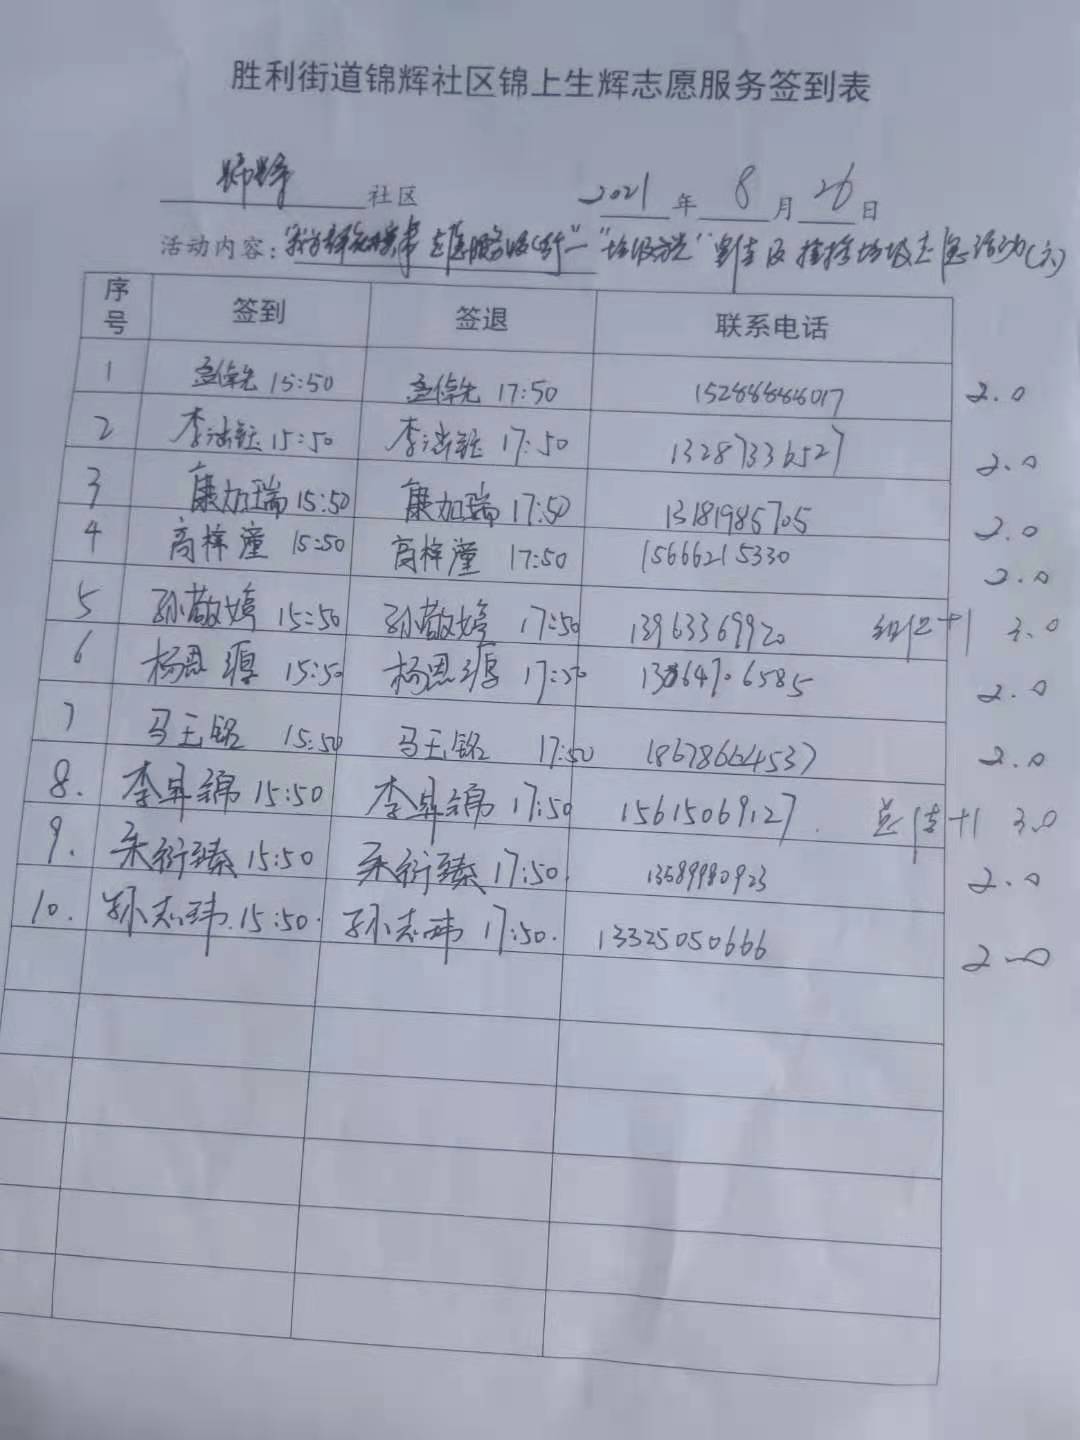 胜利街道锦辉社区锦上生辉志愿服务签到表
社区 2021年8月26日
活动内容：志愿服务 垃圾 志愿活动(六)
序号 签到 签退 联系电话
1 15:50 17:50 15288888017 2.0
2 李 15:50 李 17:50 13287336527 2.0
3 康加瑞 15:50 康加瑞 17:50 13181985705 2.0
4 高梓潼 15:50 高梓潼 17:50 15666215330 2.0
5 孙敬婷 15:50 孙敬婷 17:50 13963369920 +1 3.0
6 杨恩 15:50 杨恩 17:50 2.0
7 马玉铭 15:50 马玉铭 17:50 18678664537 2.0
8. 李昇锦 15:50 李昇锦 17:50 15615069127. +1 3.0
9. 朱衍臻 15:50 朱衍臻 17:50. 13589980923 2.0
10. 孙志玮. 15:50. 孙志玮 17:50. 13325050666 2.0